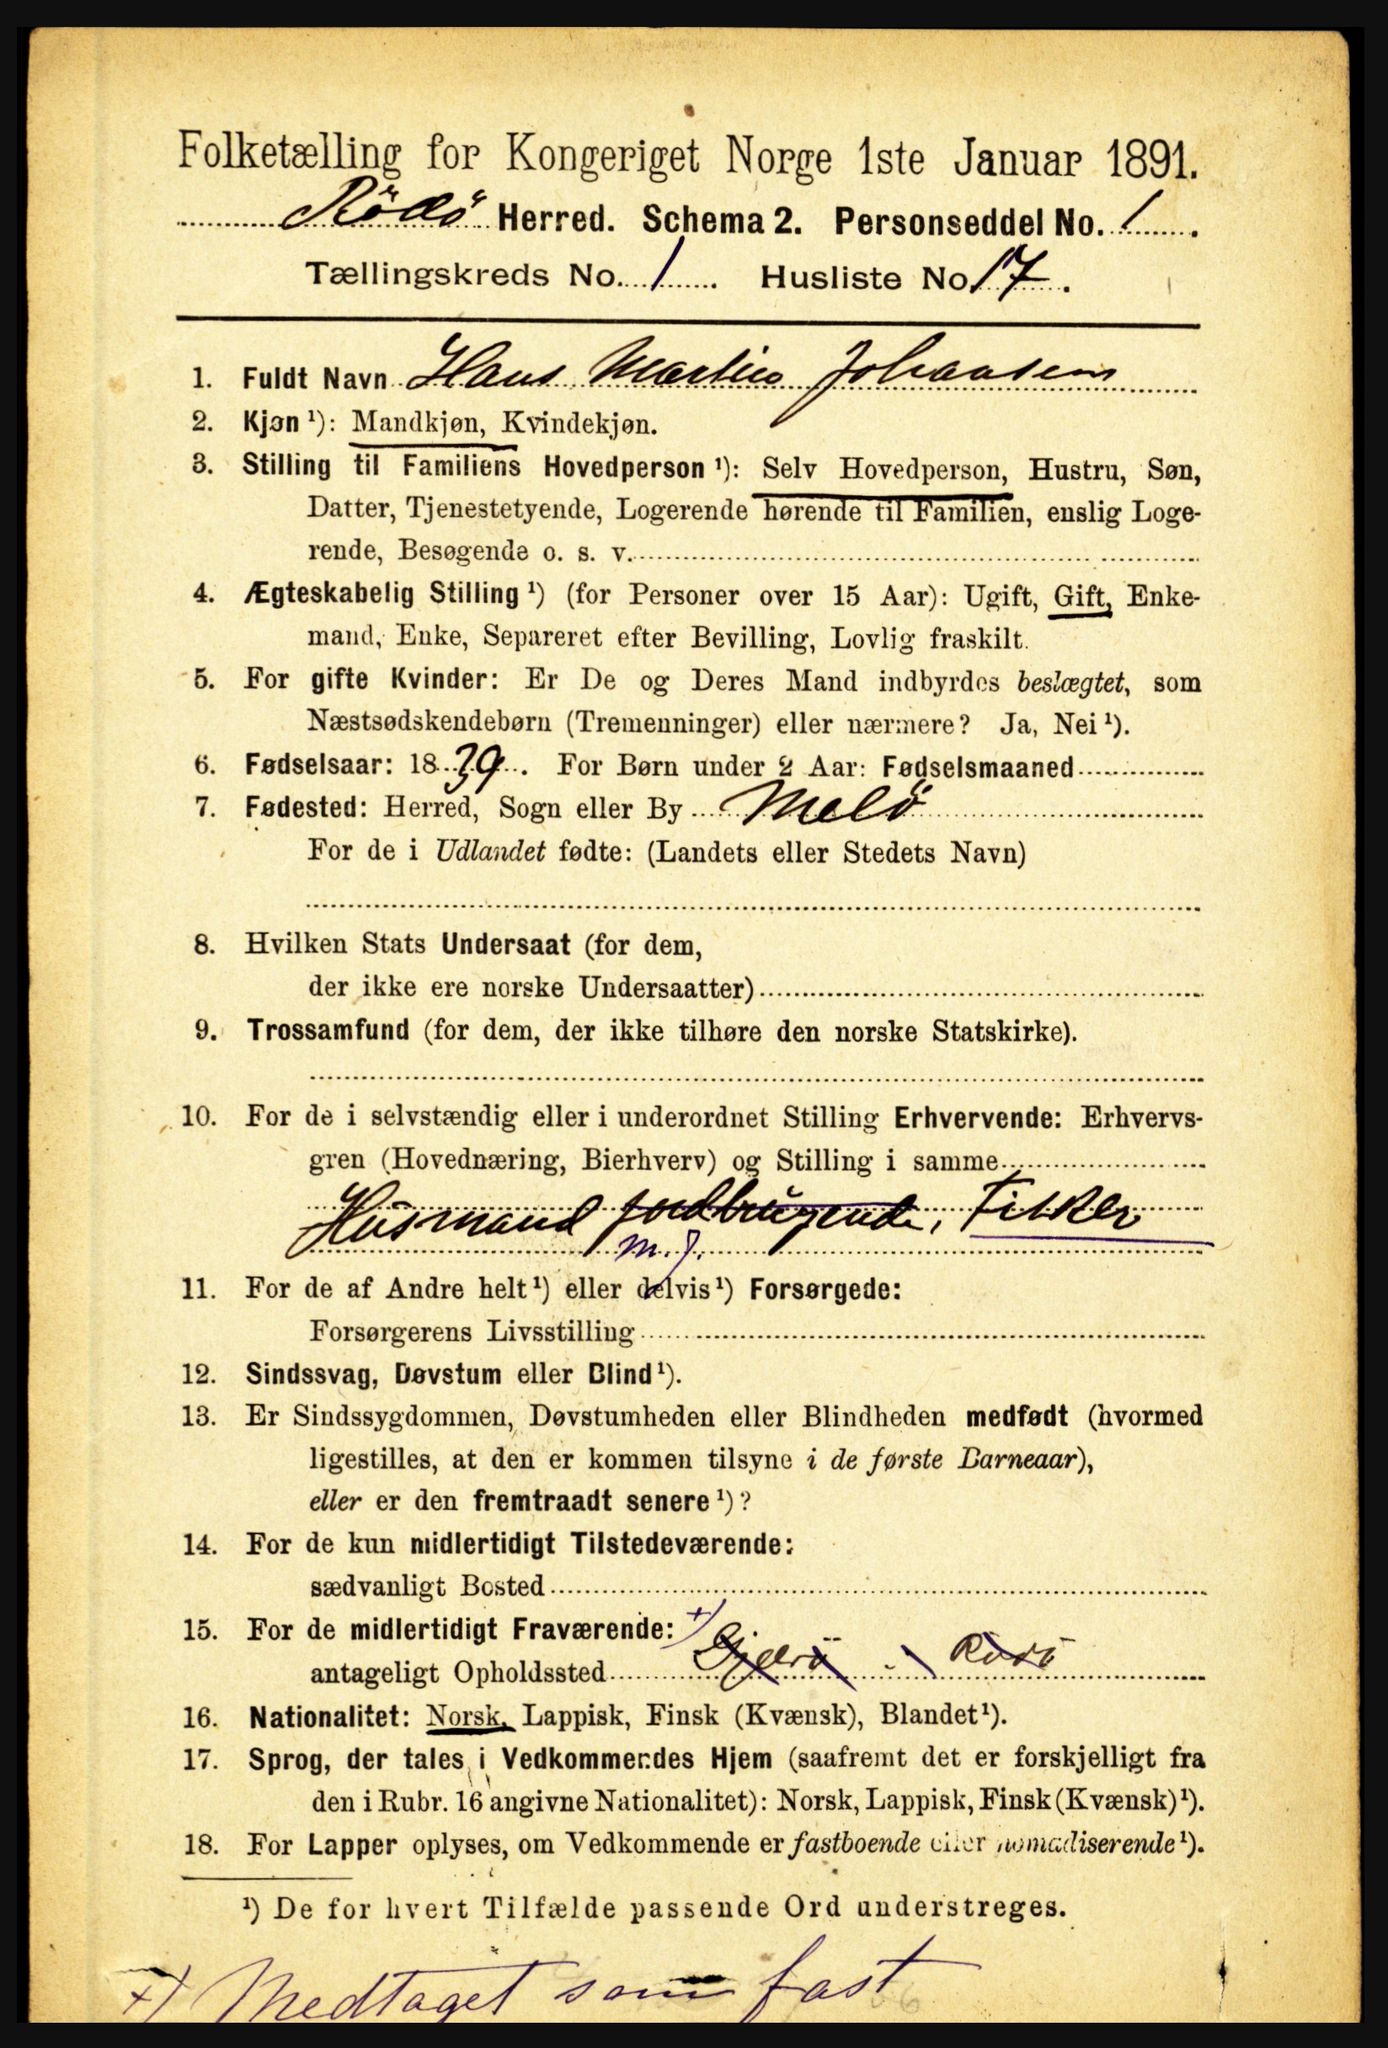 Folketælling for Kongeriget Norge 1ste Januar 1891.
Rödö Herred. Schema 2. Personseddel No. 1.
Tællingskreds No. 1. Husliste No 17.
1. Fuldt Navn Hans Martin Johansen
2. Kjøn ¹): Mandkjøn, Kvindekjøn.
3. Stilling til Familiens Hovedperson ¹): Selv Hovedperson, Hustru, Søn,
Datter, Tjenestetyende, Logerende hørende til Familien, enslig Loge-
rende, Besøgende o. s. v.
4. Ægteskabelig Stilling ¹) (for Personer over 15 Aar): Ugift, Gift, Enke-
mand, Enke, Separeret efter Bevilling, Lovlig fraskilt.
5. For gifte Kvinder: Er De og Deres Mand indbyrdes beslægtet, som
Næstsødskendebørn (Tremenninger) eller nærmere? Ja, Nei ¹).
6. Fødselsaar: 1839. For Børn under 2 Aar: Fødselsmaaned
7. Fødested: Herred, Sogn eller By Melö
For de i Udlandet fødte: (Landets eller Stedets Navn)
8. Hvilken Stats Undersaat (for dem,
der ikke ere norske Undersaatter)
9. Trossamfund (for dem, der ikke tilhøre den norske Statskirke).
10. For de i selvstændig eller i underordnet Stilling Erhvervende: Erhvervs-
gren (Hovednæring, Bierhverv) og Stilling i samme
Husmand jordbrugende, Fisker
m. j.
11. For de af Andre helt ¹) eller delvis ¹) Forsørgede:
Forsørgerens Livsstilling
12. Sindssvag, Døvstum eller Blind ¹).
13. Er Sindssygdommen, Døvstumheden eller Blindheden medfødt (hvormed
ligestilles, at den er kommen tilsyne i de første Barneaar),
eller er den fremtraadt senere ¹)?
14. For de kun midlertidigt Tilstedeværende:
sædvanligt Bosted
15. For de midlertidigt Fraværende: +)
antageligt Opholdssted Gjerö - Rödö
16. Nationalitet: Norsk, Lappisk, Finsk (Kvænsk), Blandet ¹).
17. Sprog, der tales i Vedkommendes Hjem (saafremt det er forskjelligt fra
den i Rubr. 16 angivne Nationalitet): Norsk, Lappisk, Finsk (Kvænsk) ¹).
18. For Lapper oplyses, om Vedkommende er fastboende eller nomadiserende ¹).
¹) De for hvert Tilfælde passende Ord understreges.
+) Medtaget som fast